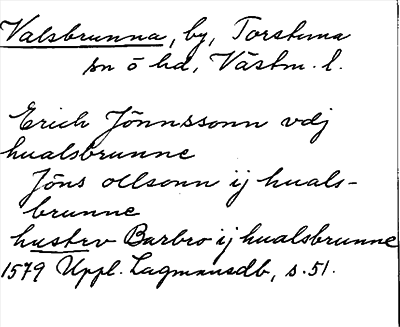 Valsbrunna, by, Torstuna
sn o hd, Västm. l.
Erich Jönnssonn vdj
hualsbrunne
Jöns ollsonn ij huals-
brunne
hustrv Barbro ij hualsbrunne
1579 Uppl. Lagmansdb, s. 51.